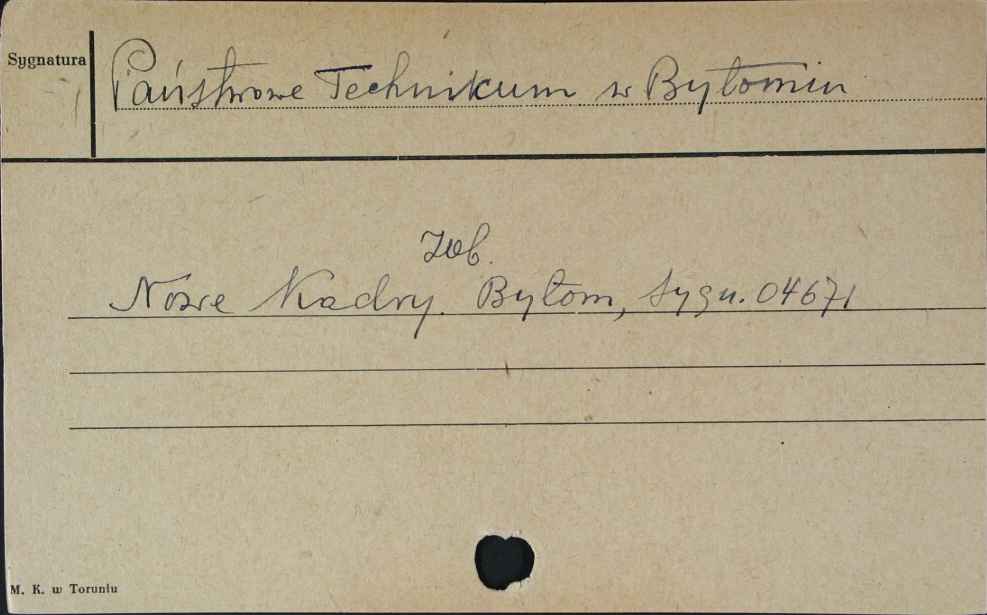 Sygnatura
Państwowe Technikum w Bytomiu
Zob.
Nowe Kadry. Bytom, sygn. 04671
M. K. w Toruniu